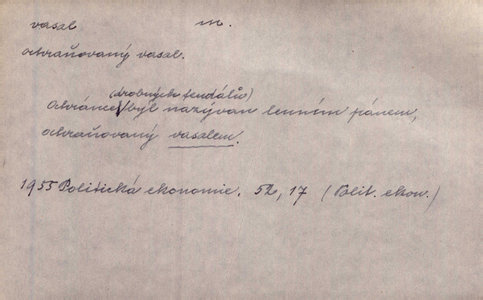 vasal m.
ochraňovaný vasal.
(drobných feudálů)
Ochránce byl nazýván lenním pánem,
ochraňovaný vasalem.
1955 Politická ekonomie. 52, 17 (Polit. ekon.)